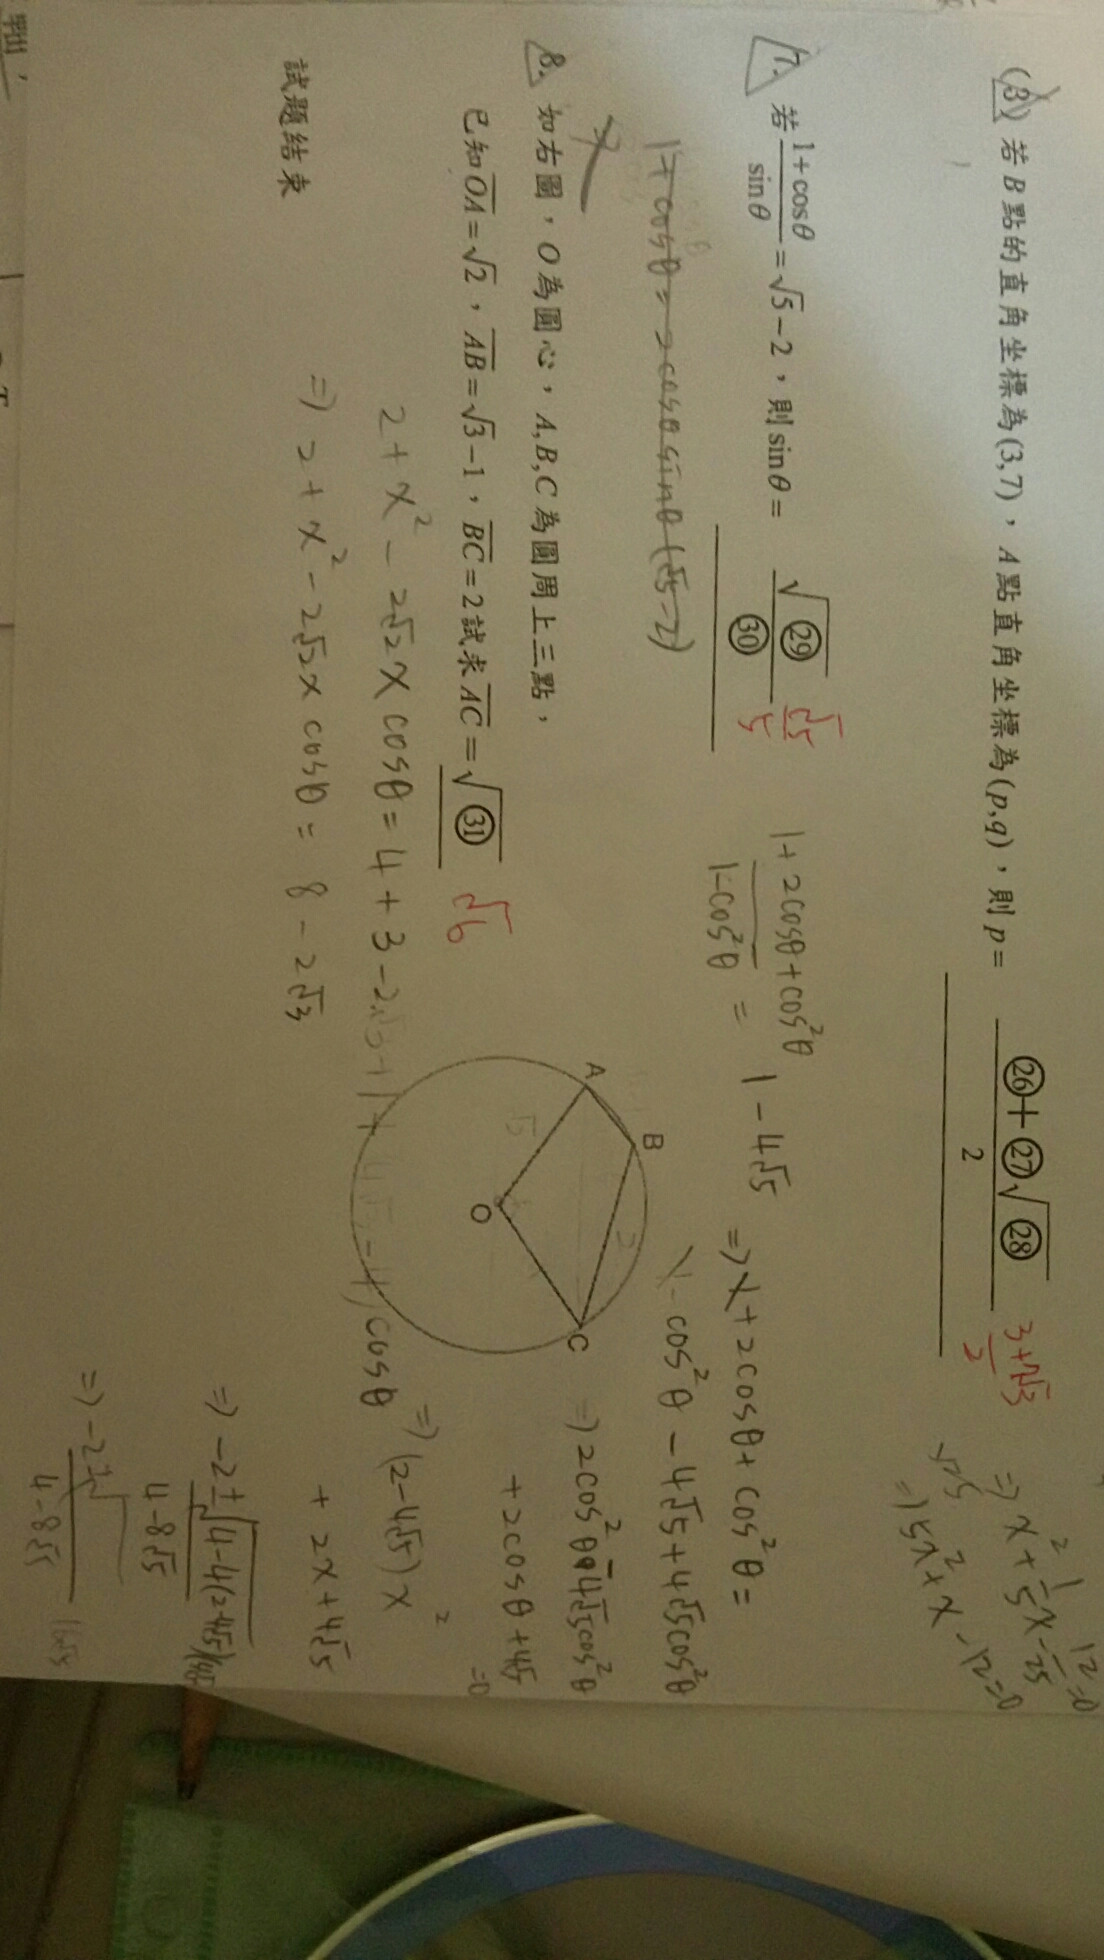 (3) 若B點的直角坐標為(3,7)，A點直角坐標為(p,q)，則p= (㉖+㉗√㉘)/2
(3+7√3)/2
⇒ x²+1/5x-12/25=0
⇒ 15x²+x-12=0
7. 若(1+cosθ)/sinθ=√5-2，則sinθ= √㉙/㉚
√5/5
1+cosθ=2cosθsinθ(√5-2)
(1+2cosθ+cos²θ)/(1-cos²θ) = 1-4√5
⇒ 1+2cosθ+cos²θ=
1-cos²θ-4√5+4√5cos²θ
⇒ 2cos²θ-4√5cos²θ
+2cosθ+4√5=0
⇒ (2-4√5)x²
+2x+4√5
⇒ (-2±√4-4(2-4√5)(4√5))/(4-8√5)
⇒ -2±√
4-8√5
8. 如右圖，O為圓心，A,B,C為圓周上三點，
已知OA=√2，AB=√3-1，BC=2試求AC=√㉛
√6
2+x²-2√2xcosθ=4+3-2√3+1+4√3-4)cosθ
⇒ 2+x²-2√2xcosθ=8-2√3
A
B
C
O
2
試題結束